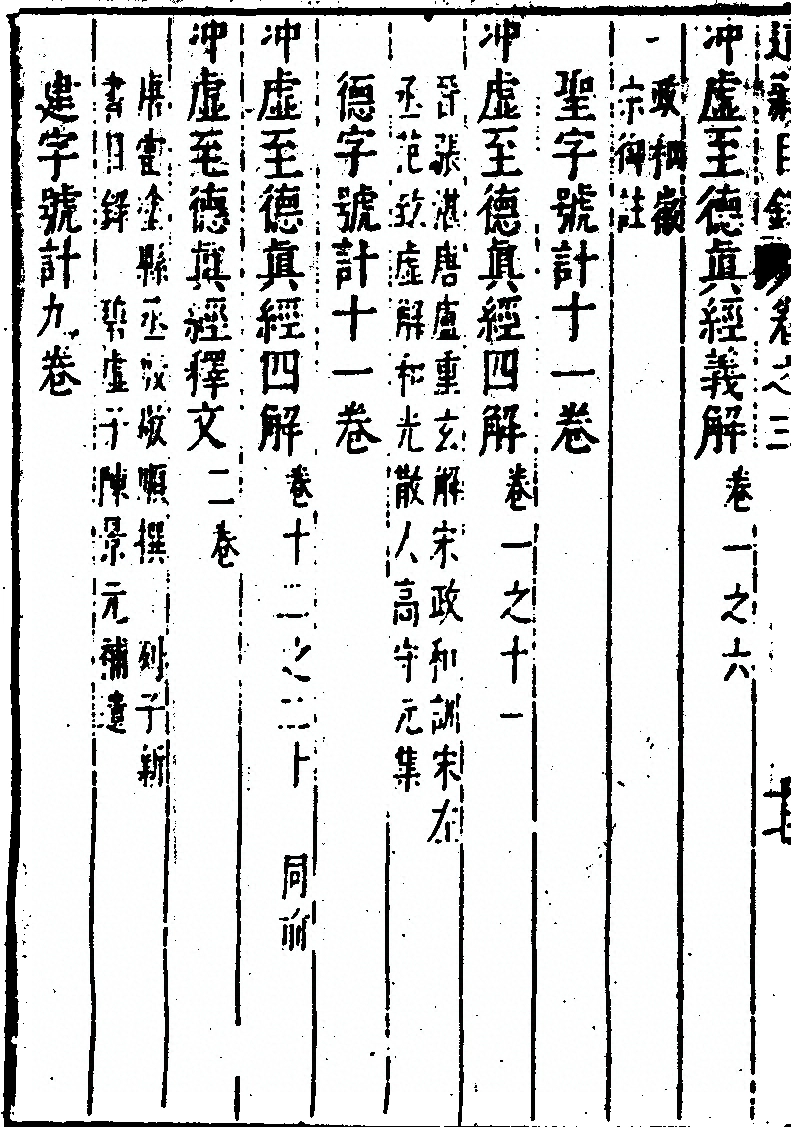 目錄卷之三
冲虛至德眞經義解 卷一之六
政和徽
宗御註
聖字號計十一卷
冲虛至德眞經四解 卷一之十一
晉張湛唐盧重玄解宋政和訓宋左
丞范致虛解和光散人高守元集
德字號計十一卷
冲虛至德眞經四解 卷十二之二十 同前
冲虛至德眞經釋文 二卷
唐當塗縣丞殷敬順撰 列子新
書目錄 碧虛子陳景元補遺
建字號計九卷